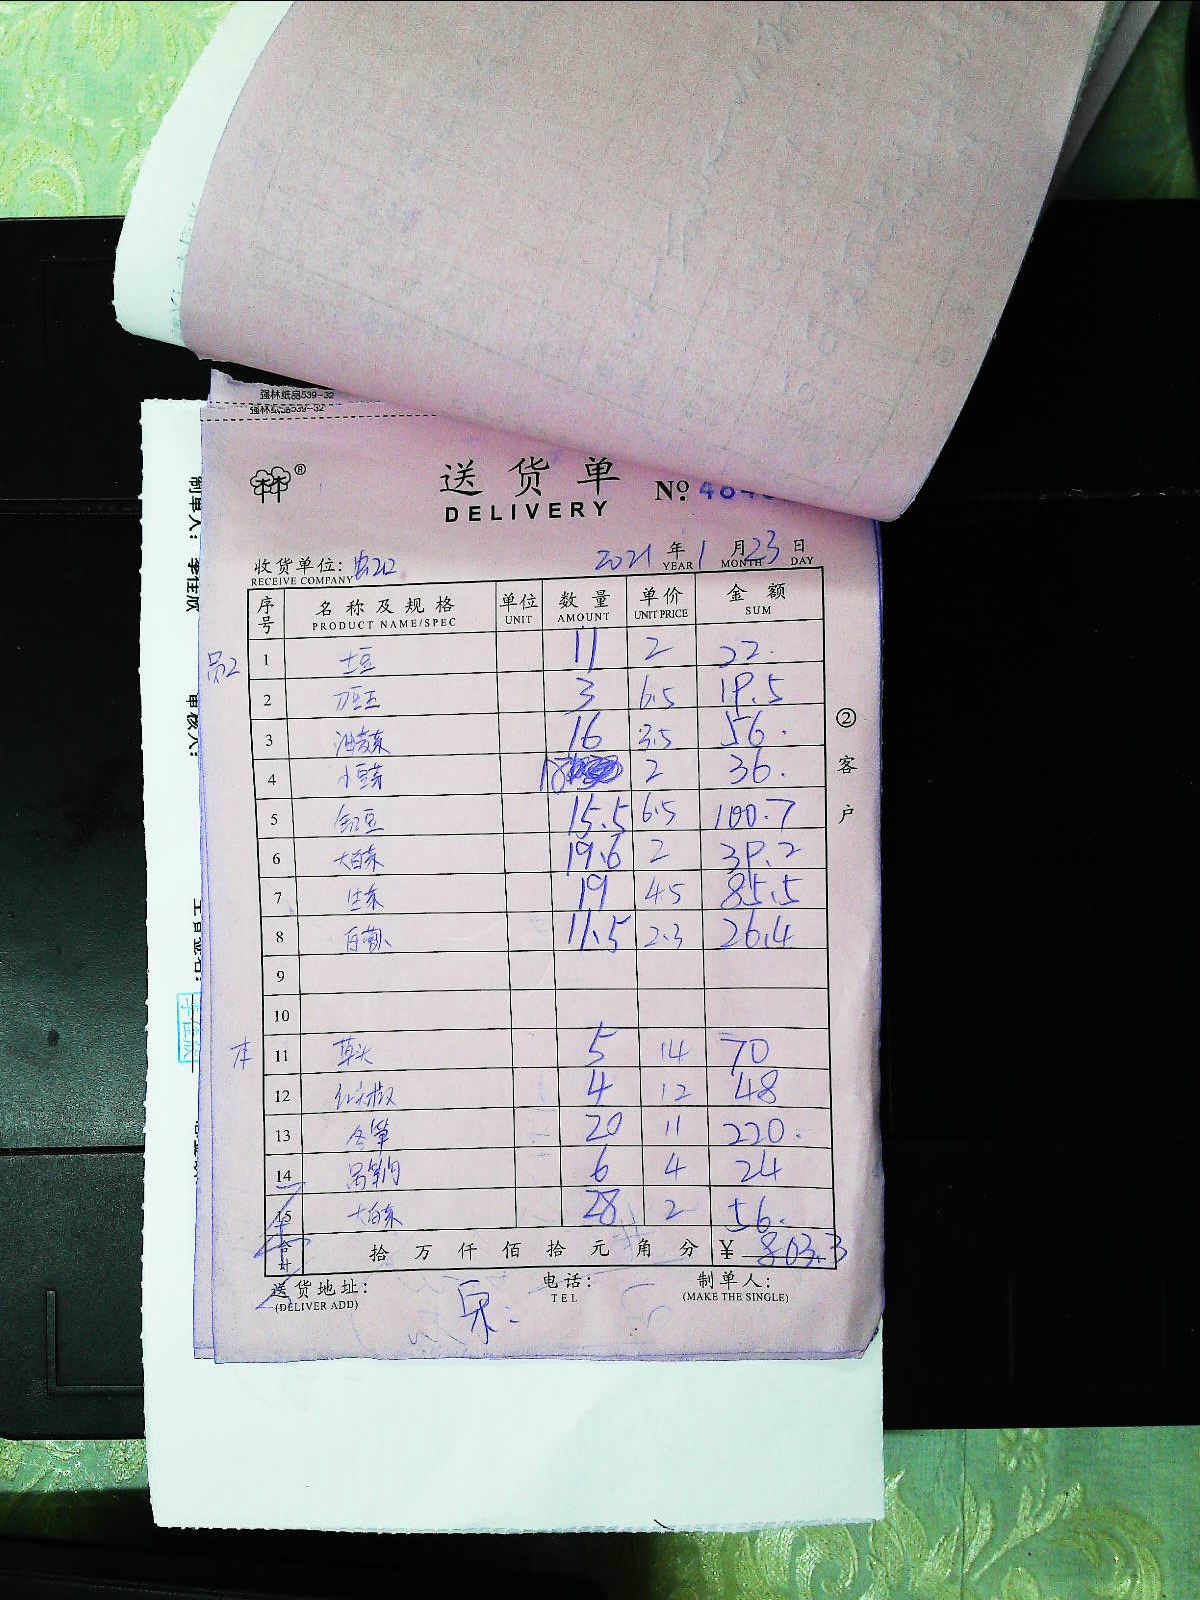 强林纸品539-32
强林纸品539-32
送货单 No. 484
DELIVERY
收货单位: 2021 年 1 月 23 日
RECEIVE COMPANY YEAR MONTH DAY
序号 名称及规格 单位 数量 单价 金额
PRODUCT NAME/SPEC UNIT AMOUNT UNIT PRICE SUM
员2 1 土豆 11 2 22.
2 刀豆 3 6.5 19.5
3 油麦菜 16 3.5 56.
4 18 2 36.
5 15.5 6.5 100.7
6 大白菜 19.6 2 39.2
7 生菜 19 4.5 85.5
8 白萝卜 11.5 2.3 26.4
9
10
本 11 草头 5 14 70
12 红尖椒 4 12 48
13 冬笋 20 11 220.
14 莴笋 6 4 24
15 大白菜 28 2 56.
合计 拾 万 仟 佰 拾 元 角 分 ¥ 803.3
送货地址: 电话: 制单人:
(DELIVER ADD) TEL (MAKE THE SINGLE)
②客户
制单人: 李佳欣
审核人: